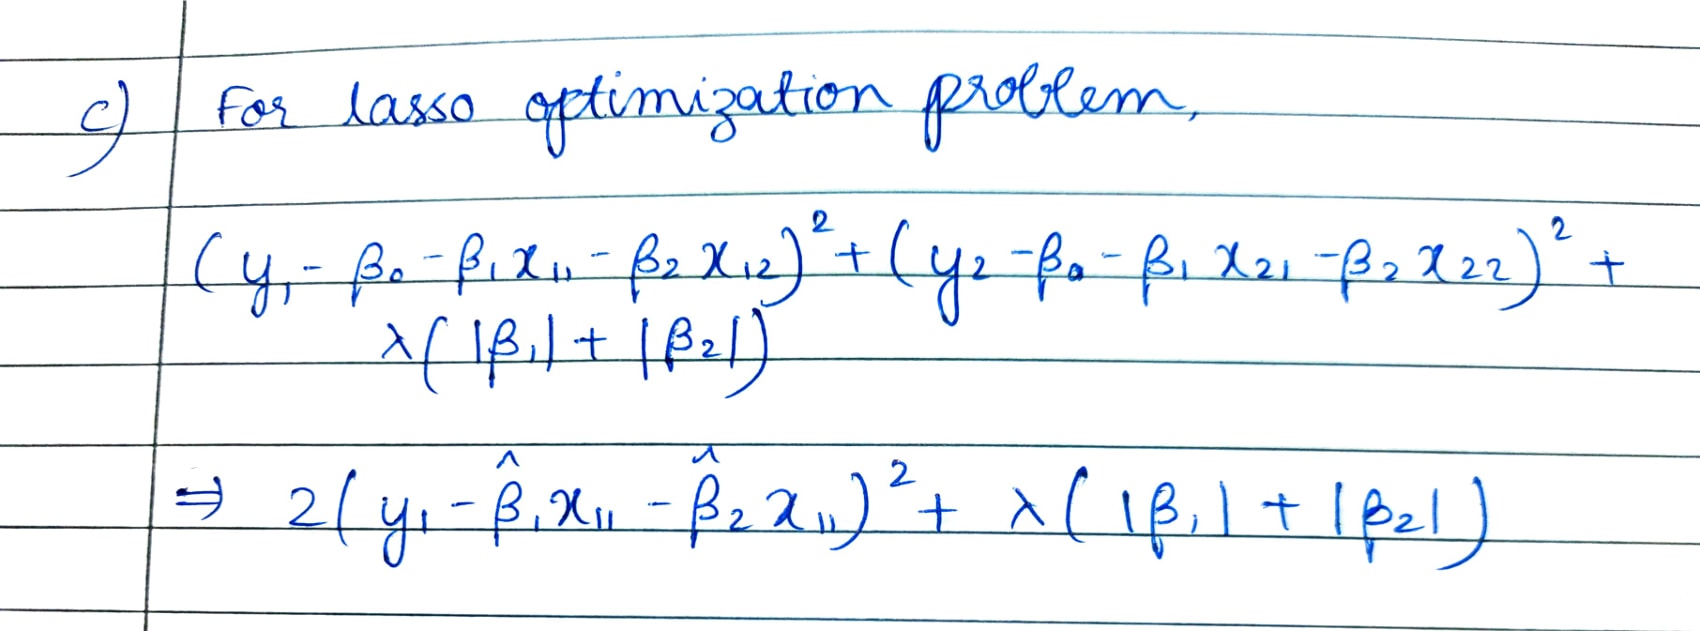 c) For lasso optimization problem,
(y₁ - β₀ - β₁x₁₁ - β₂x₁₂)² + (y₂ - β₀ - β₁x₂₁ - β₂x₂₂)² +
λ(|β₁| + |β₂|)
⇒ 2(y₁ - β̂₁x₁₁ - β̂₂x₁₁)² + λ(|β₁| + |β₂|)